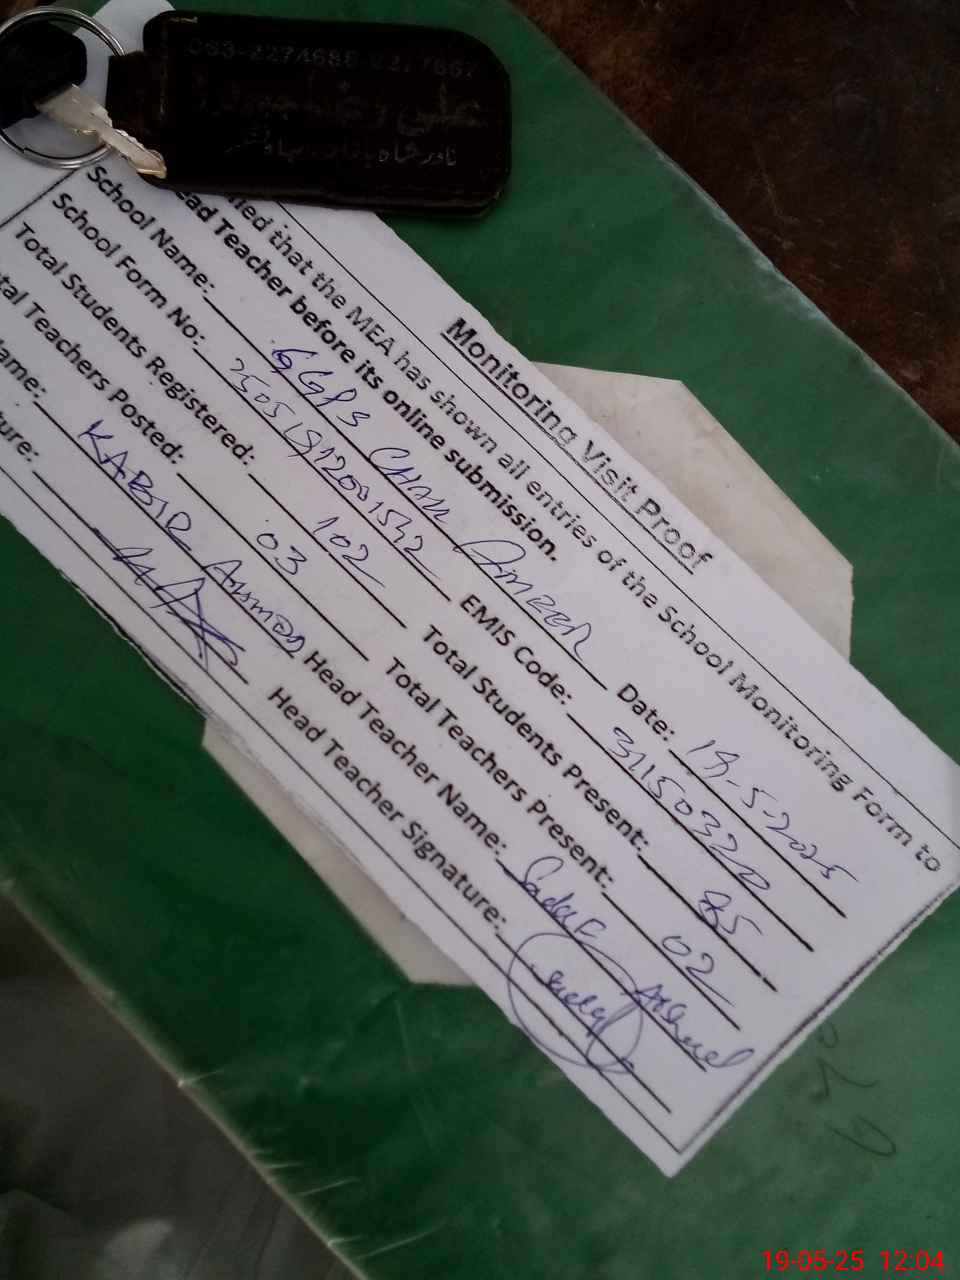 063-2274686-
نادر شاہ بازار بہاولنگر
Monitoring Visit Proof
that the MEA has shown all entries of the School Monitoring Form to
ead Teacher before its online submission.
School Name: GGPS CHAK AMEER Date: 19-5-2025
School Form No: EMIS Code: 31150320
Total Students Registered: 102 Total Students Present: 85
tal Teachers Posted: 03 Total Teachers Present: 02
ame: KABIR AHMAD Head Teacher Name: Sadaf Arshad
ture: Head Teacher Signature:
19-05-25 12:04